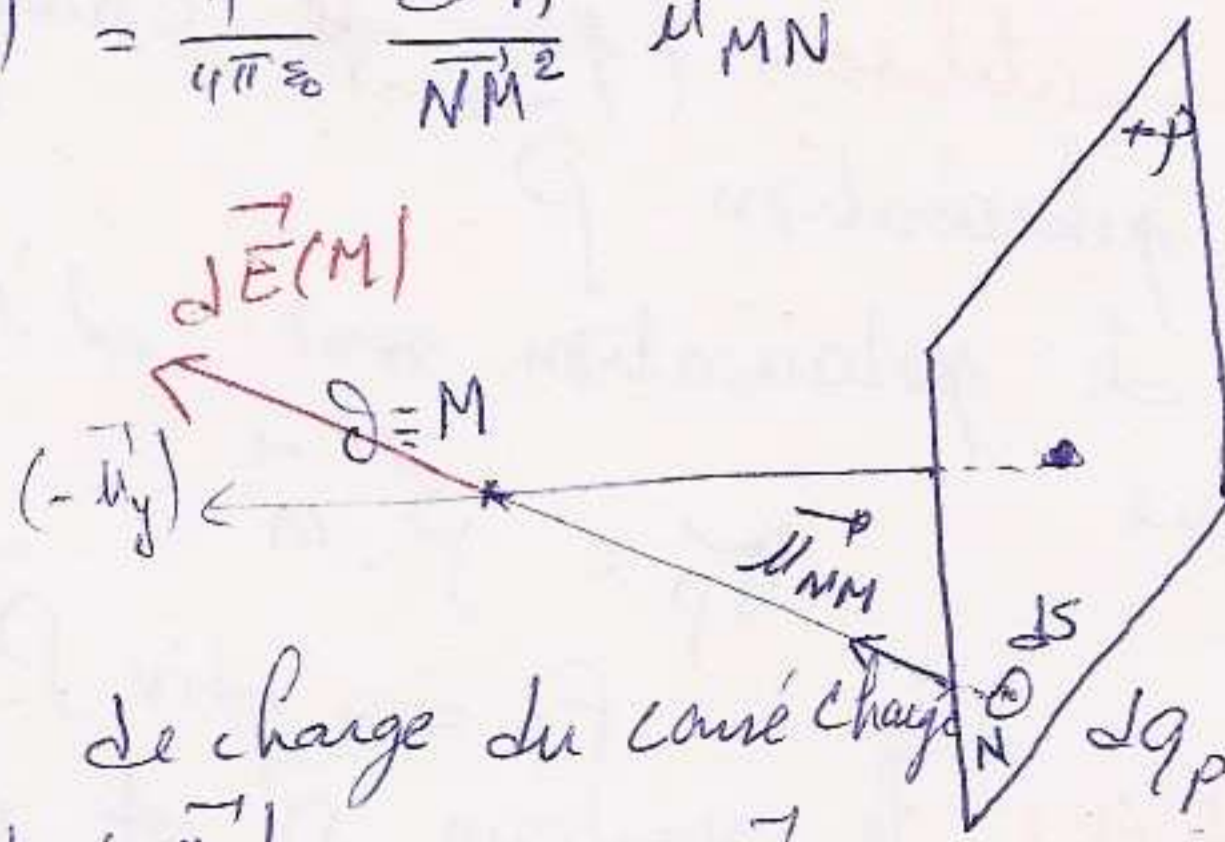 ) = 1/4πε₀ NM² u MN
+ρ
dE(M)
O ≡ M
(-u_y)
u_NM
dS
N
de charge du carré chargé dq_p